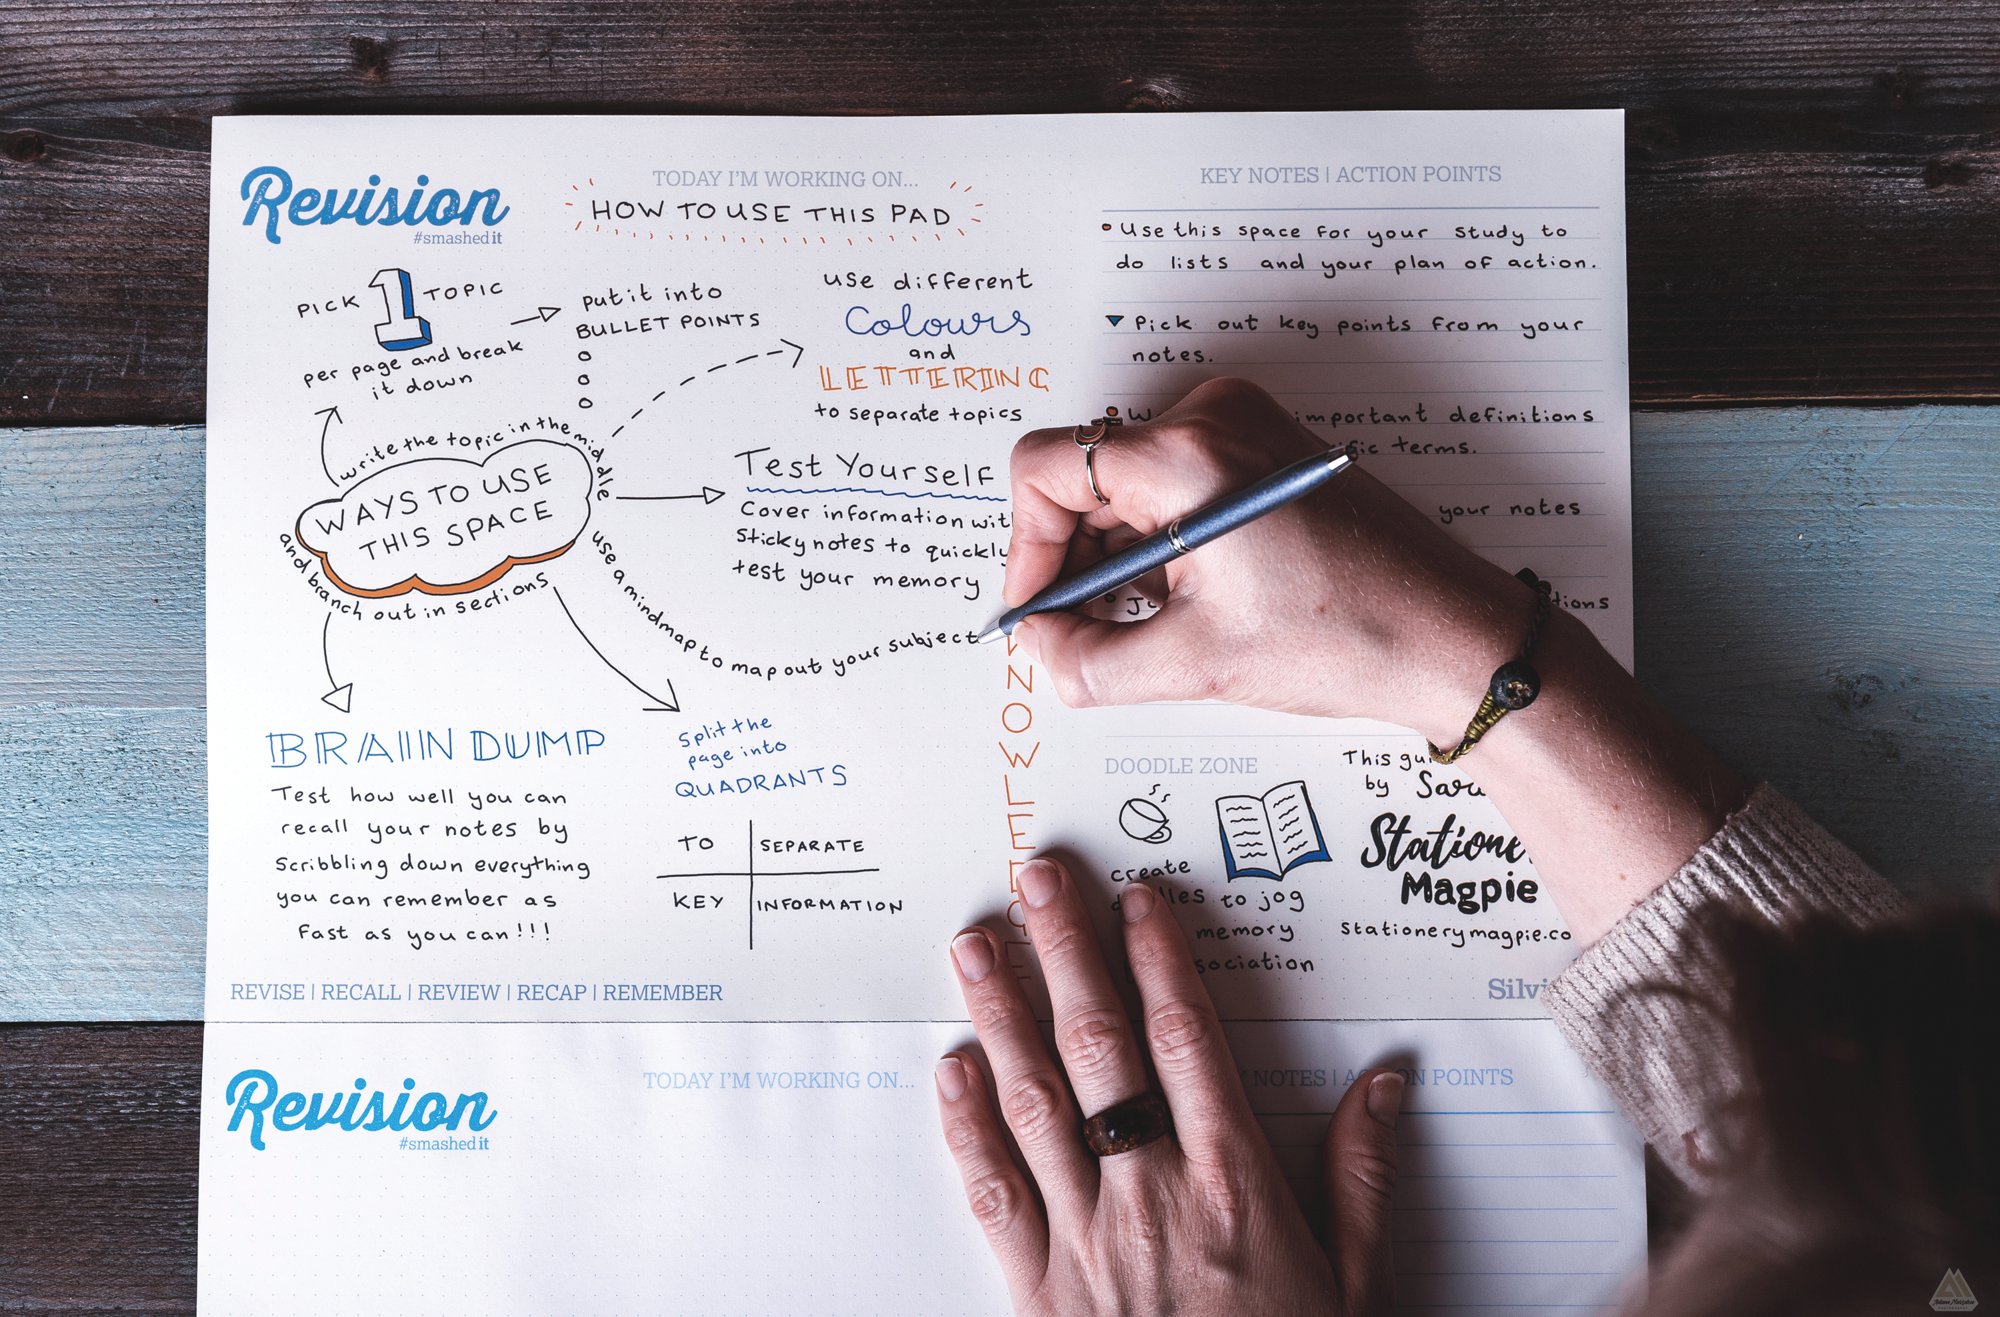 Revision
#smashedit
TODAY I'M WORKING ON...
HOW TO USE THIS PAD
PICK 1 TOPIC
per page and break
it down
put it into
BULLET POINTS
use different
Colours
and
LETTERING
to separate topics
write the topic in the middle
WAYS TO USE
THIS SPACE
and branch out in sections
Test Yourself
Cover information
Sticky notes to quickly
test your memory
use a mindmap to map out your subject
KNOWLEDGE
BRAIN DUMP
Test how well you can
recall your notes by
Scribbling down everything
you can remember as
fast as you can!!!
Split the
page into
QUADRANTS
TO SEPARATE
KEY INFORMATION
REVISE | RECALL | REVIEW | RECAP | REMEMBER
KEY NOTES | ACTION POINTS
Use this space for your study to
do lists and your plan of action.
Pick out key points from your
notes.
important definitions
terms.
your notes
DOODLE ZONE
create
to jog
memory
This
by
Magpie
stationerymagpie.co
Revision
#smashedit
TODAY I'M WORKING ON...
NOTES | POINTS